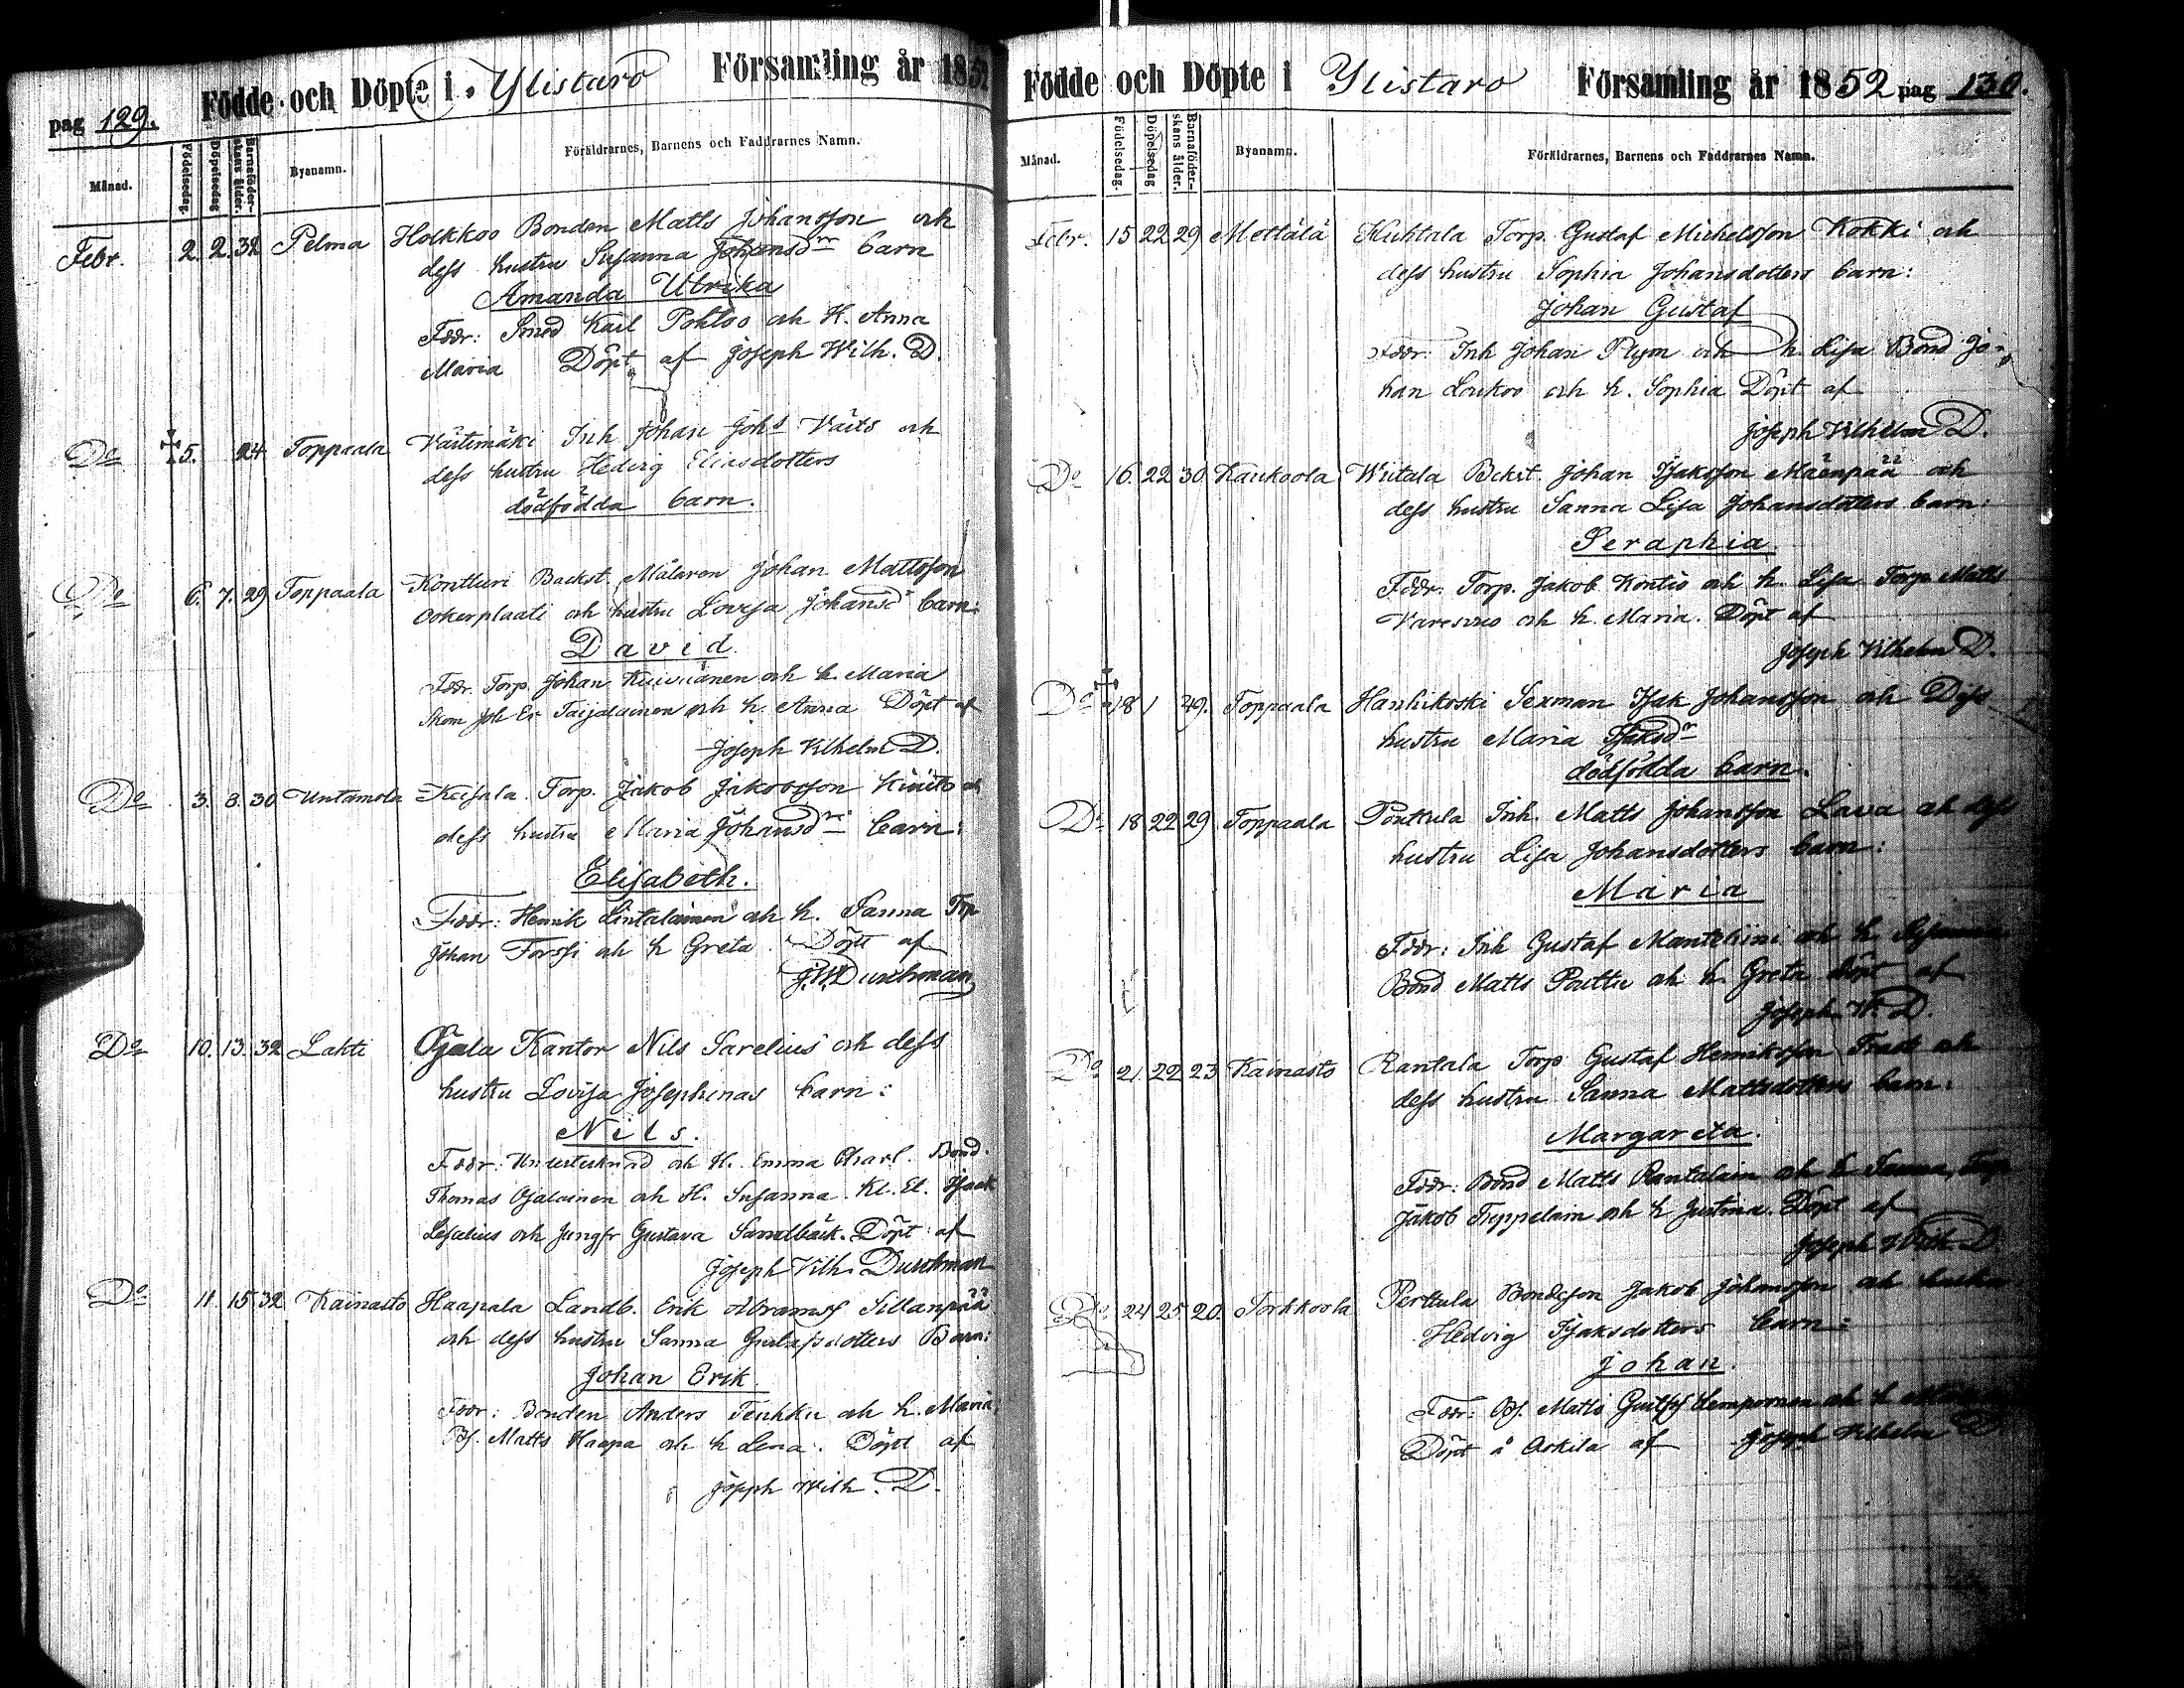 pag 129.
Födde och Döpte i Ylistaro Församling år 1852
Månad.
Födelsedag.
Döpelsedag
Barnaföder-
skans ålder.
Byanamn.
Föräldrarnes, Barnens och Faddrarnes Namn.
Febr. 2. 2. 32 Pelma Holkkoo Bonden Matts Johansson och
dess hustru Susanna Johansdr barn
Amanda Ulrika
Fddr: Smed Karl Pohtoo och H. Anna
Maria Döpt af Joseph Wilh. D.
Do 5. 24 Toppaala Inh Johan Johs och
dess hustru Hedvig Eliasdotters
dödfödda barn.
Do 6. 7. 29 Toppaala Kontturi Backst. Målaren Johan Mattsson
Ockerplaati och hustru Lovisa Johansdr barn:
David.
Fddr. Torp. Johan och h. Maria
Skom Joh Er Taijalainen och h. Anna Döpt af
Joseph Vilhelm D.
Do 3. 8. 30 Untamola Keisala Torp. Jakob Jakobsson
dess hustru Maria Johansdr barn:
Elisabeth.
Fddr: Henrik Lintalainen och h. Sanna Trp
Johan Forssi och h Greta. Döpt af
J. W. Durchman
Do 10. 13. 32 Lahti Ojala Kantor Nils Sarelius och dess
hustru Lovisa Josephinas barn:
Nils.
Fddr: Undertecknad och H. Emma Charl. Bond.
Thomas Ojalainen och H. Susanna. Kl. El. Isaak
och Jungfr Gustava Sandbäck. Döpt af
Joseph Vilh. Durchman
Do 11 15 32 Kainasto Haapala Landb. Erik Abramss Sillanpää
och dess hustru Sanna Gustafsdotters Barn:
Johan Erik.
Fddr: Bonden Anders Teuhku och h. Maria,
Bs. Matts Haapa och h Lena. Döpt af
Joseph Wilh. D.
Födde och Döpte i Ylistaro Församling år 1852 pag 130.
Månad.
Födelsedag.
Döpelsedag
Barnaföder-
skans ålder.
Byanamn.
Föräldrarnes, Barnens och Faddrarnes Namn.
Febr. 15 22 29 Mettälä Kuhtala Torp. Gustaf Michelsson Kokki och
dess hustru Sophia Johansdotters barn:
Johan Gustaf
Fddr: Inh Johan och h. Lisa Bond Jo-
han Loukoo och h. Sophia Döpt af
Joseph Vilhelm D.
Do 16. 22 30 Kaukoola Wiitala Bckst. Johan Isaksson Mäenpää och
dess hustru Sanna Lisa Johansdotters barn:
Seraphia.
Fddr: Torp. Jakob Kontio och h. Lisa Torp Matts
och h. Maria. Döpt af
Joseph Vilhelm D.
Do 18 49. Toppaala Hanhikoski Sexman Isak Johansson och Dess
hustru Maria Isaksdr
dödfödda barn.
Do 18 22 29 Toppaala Pouttula Inh. Matts Johansson Lava och dess
hustru Lisa Johansdotters barn:
Maria
Fddr: Inh Gustaf och h.
Bond Matts Pouttu och h. Greta döpt af
Joseph W. D.
Do 21. 22 23 Kainasto Rantala Torp Gustaf Henriksson och
dess hustru Sanna Mattsdotters barn:
Margareta.
Fddr: Bond Matts Rantalain och h Sanna, Torp
Jakob och h Justina. Döpt af
Joseph Wilh D.
Do 24 25. 20. Torkkoola Perttula Bondeson Jakob Johansson och hustru
Hedvig Isaksdotters barn:
Johan.
Fddr: Bs. Matts och h
Döpt å af Joseph Vilhelm D